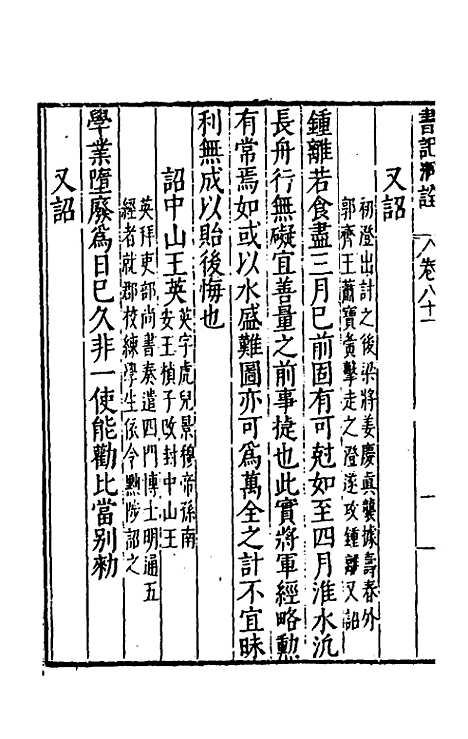 書記洞詮 卷八十一 一
又詔
初澄出討之後梁將姜慶眞襲據壽春外
郭齊王蕭寶夤擊走之澄遂攻鍾離又詔
鍾離若食盡三月已前固有可尅如至四月淮水汎
長舟行無礙宜善量之前事捷也此實將軍經略勲
有常焉如或以水盛難圖亦可爲萬全之計不宜昧
利無成以貽後悔也
詔中山王英
英字虎兒景穆帝孫南
安王楨子改封中山王
英拜吏部尚書奏遣四門博士明通五
經者就郡校練學生依令黜陟詔之
學業墮廢爲日已久非一使能勸比當别勑
又詔